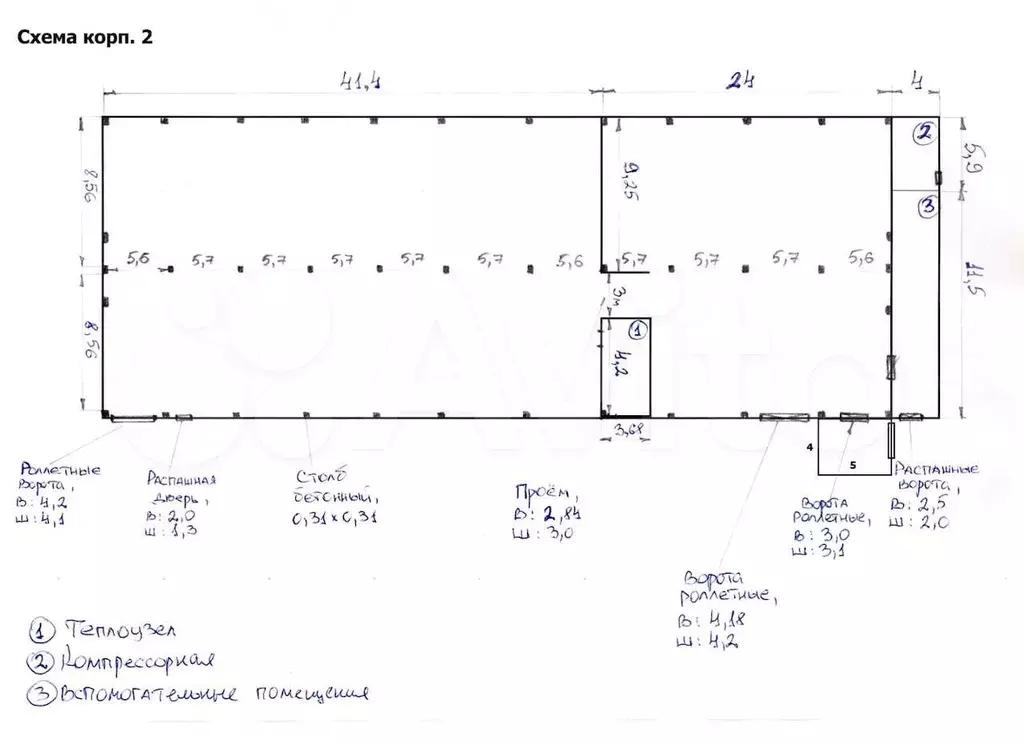 Схема корп. 2
41,4
24
4
2
5,9
8,56
9,25
3
5,6
5,7
5,7
5,7
5,7
5,7
5,6
5,7
5,7
5,7
5,6
11,5
3м
1
8,56
4,2
3,68
4
5
Avito
Роллетные
ворота,
В: 4,2
Ш: 4,1
Распашная
дверь,
В: 2,0
Ш: 1,3
Столб
бетонный,
0,31 x 0,31
Проём,
В: 2,84
Ш: 3,0
Ворота
роллетные,
В: 4,18
Ш: 4,2
Ворота
роллетные,
В: 3,0
Ш: 3,1
Распашные
ворота,
В: 2,5
Ш: 2,0
1 Теплоузел
2 Компрессорная
3 Вспомогательные помещения